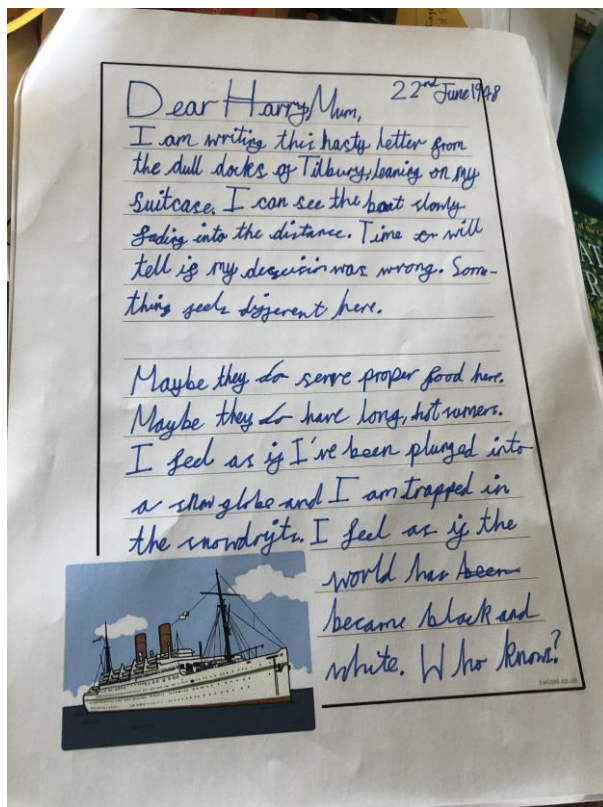 22nd June 1948
Dear Harry Mum,
I am writing this hasty letter from
the dull docks of Tilbury, leaning on my
suitcase. I can see the boat slowly
fading into the distance. Time will
tell if my descision was wrong. Some-
thing feels different here.
Maybe they do serve proper food here.
Maybe they do have long, hot sumers.
I feel as if I've been plunged into
a snow globe and I am trapped in
the snowdrifts. I feel as if the
world has been
became black and
white. Who knows?
twinkl.co.uk